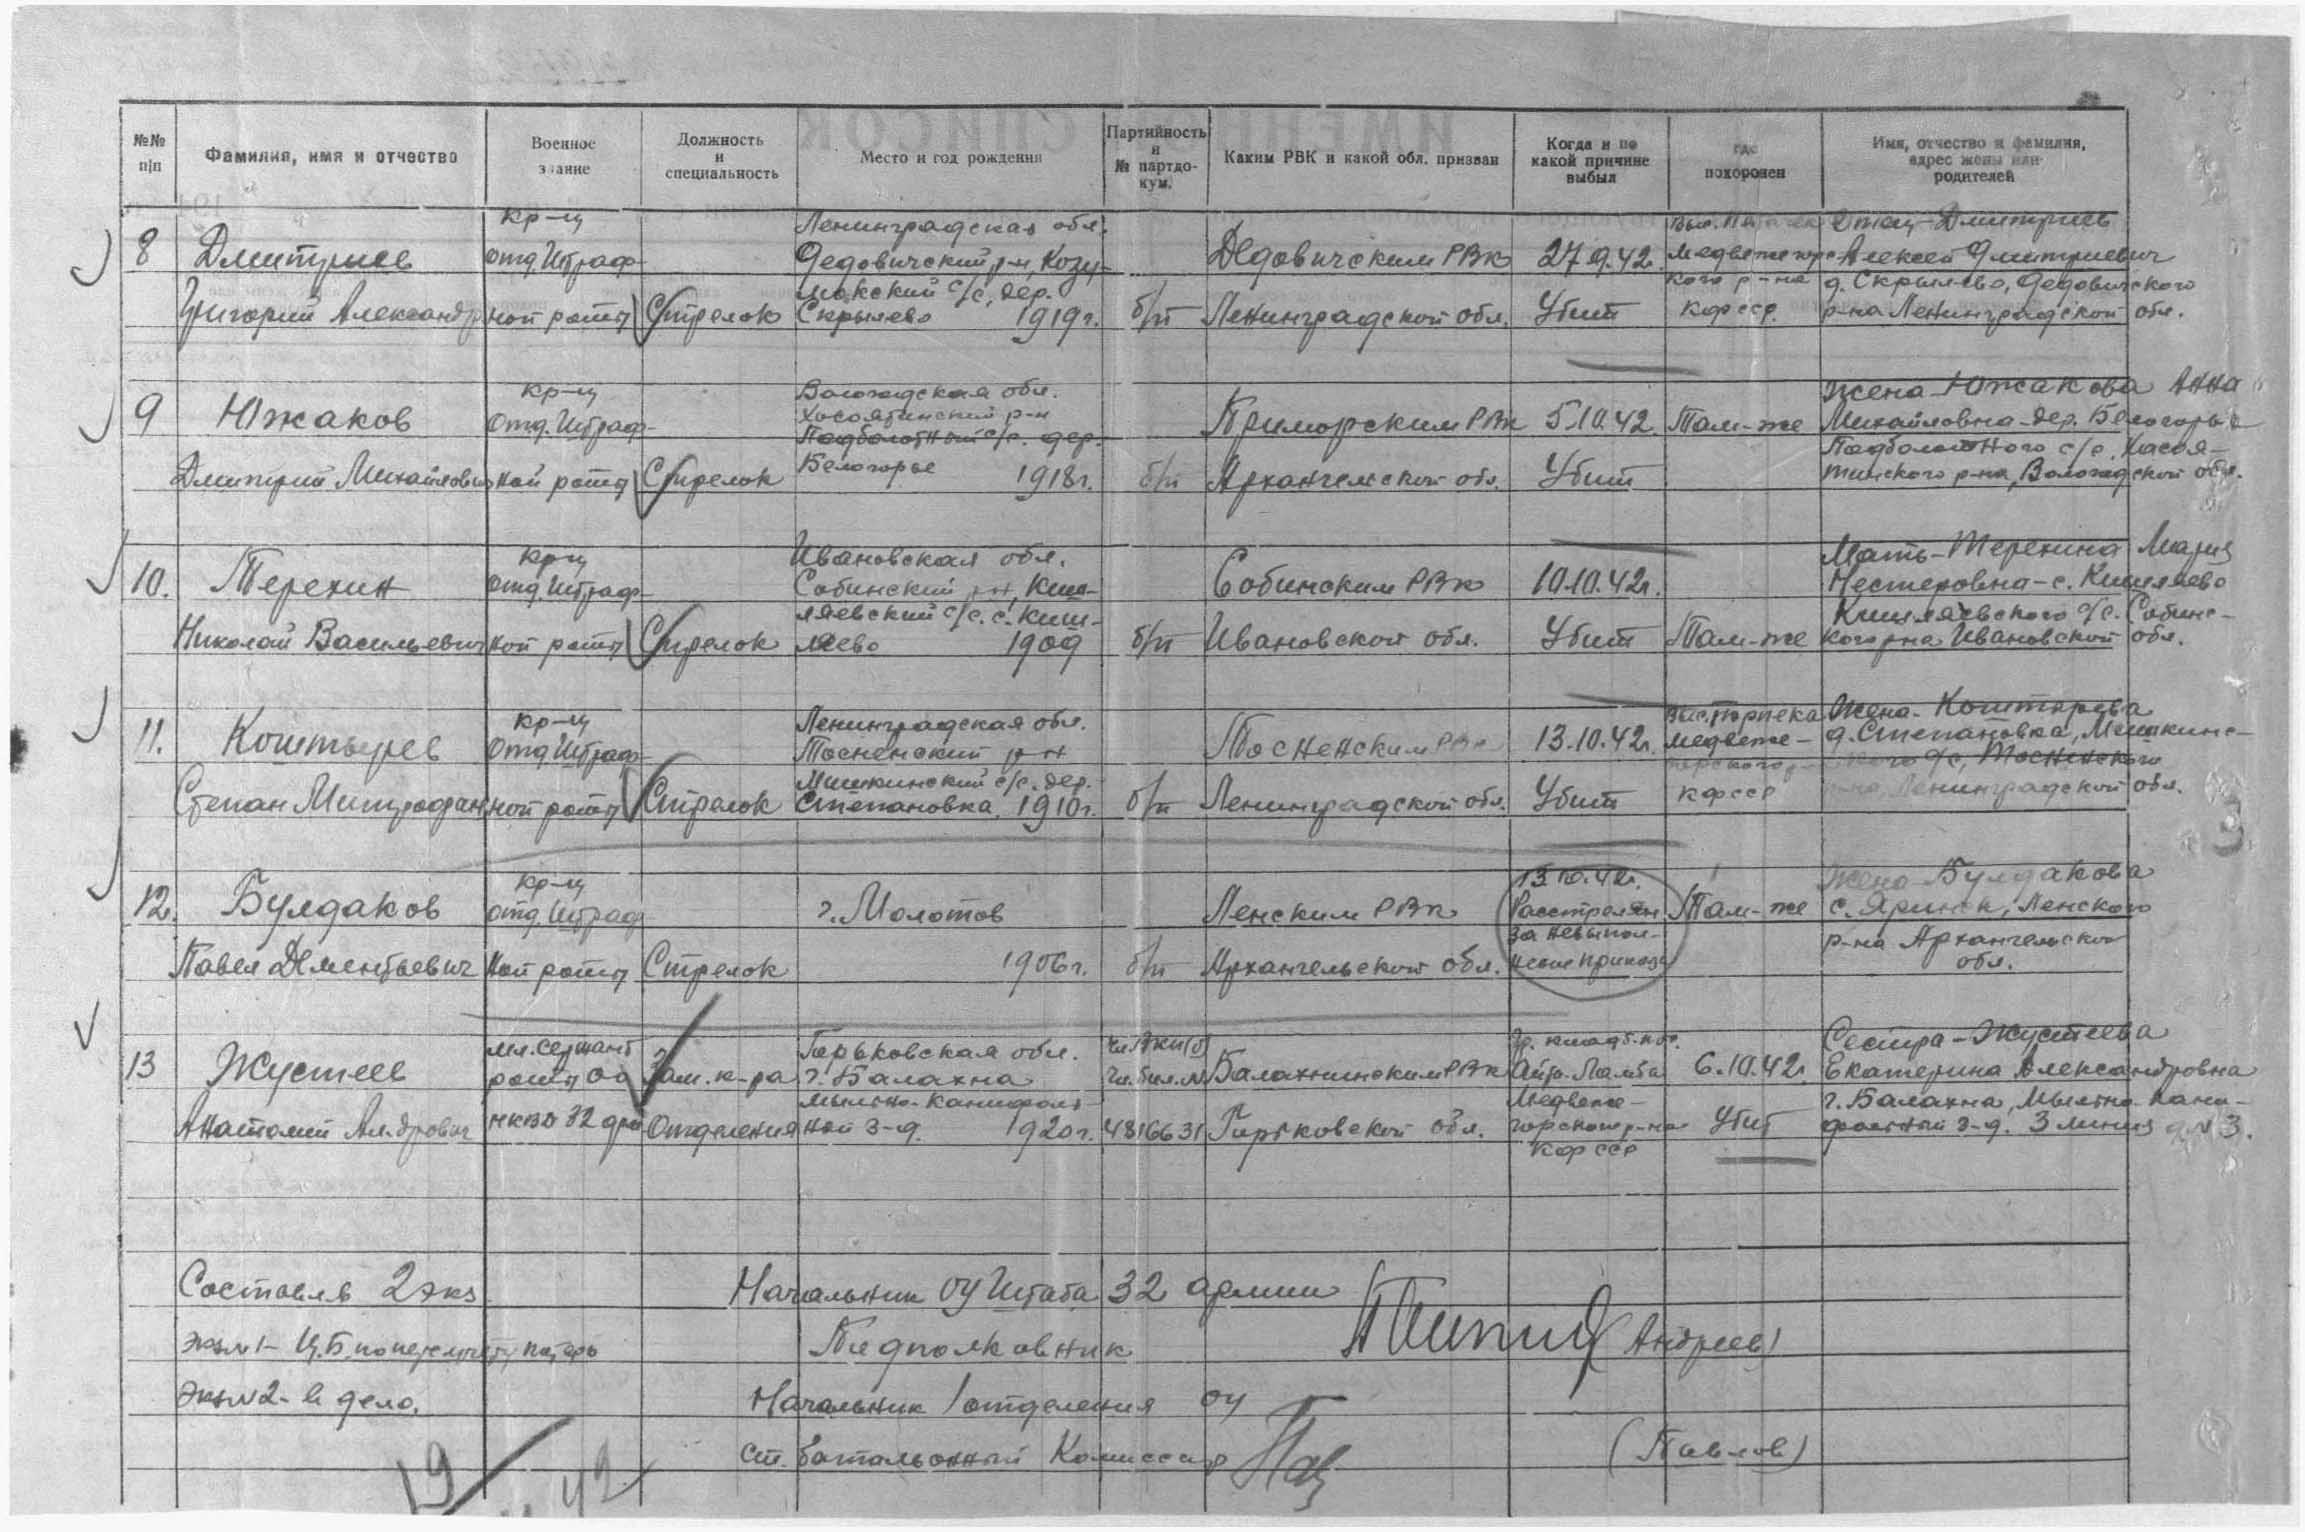 №№ п/п
Фамилия, имя и отчество
Военное звание
Должность и специальность
Место и год рождения
Партийность и № партдокум.
Каким РВК и какой обл. призван
Когда и по какой причине выбыл
где похоронен
Имя, отчество и фамилия, адрес жены или родителей
8
Дмитриев
Григорий Александр
Кр-ц
Отд. Штраф-
ной роты
Стрелок
Ленинградская обл.
Дедовичский р-н, Козу-
с/с, дер.
Скрылево 1919г.
б/п
Дедовичским РВК
Ленинградской обл.
27.9.42г.
Убит
Выс.
Медвежьегорс-
кого р-на
КФССР
Отец-Дмитриев
Алексей Дмитриевич
д. Скрылево, Дедовичского
р-на Ленинградской обл.
9
Южаков
Дмитрий Михайлович
Кр-ц
Отд. Штраф-
ной роты
Стрелок
Вологодская обл.
р-н
Подболотный с/с. дер.
Белогорье 1918г.
б/п
Приморским РВК
Архангельской обл.
5.10.42.
Убит
Там-же
Жена-Южакова Анна
Михайловна-дер. Белогорье
Подболотного с/с,
р-на, Вологодской обл.
10.
Терехин
Николай Васильевич
Кр-ц
Отд. Штраф-
ной роты
Стрелок
Ивановская обл.
Собинский р-н, Киш-
ляевский с/с. с. Киш-
ляево 1909
б/п
Собинским РВК
Ивановской обл.
10.10.42г.
Убит
Там-же
Мать-Терехина Мария
Нестеровна-с. Кишляево
Кишляевского с/с. Собинс-
кого р-на Ивановской обл.
11.
Коштырев
Степан Митрофан
Кр-ц
Отд. Штраф-
ной роты
Стрелок
Ленинградская обл.
Тосненский р-н
Мишкинский с/с. дер.
Степановка, 1910г.
б/п
Тосненским РВК
Ленинградской обл.
13.10.42г.
Убит
Выс.
Медвеже-
горского р-
КФССР
Жена-Коштырева
д. Степановка, Мишкинс-
кого с/с, Тосненского
р-на, Ленинградской обл.
12.
Булдаков
Павел Дементьевич
Кр-ц
Отд. Штраф
ной роты
Стрелок
г. Молотов
1906г.
б/п
Ленским РВК
Архангельской обл.
13.10.42г.
Расстрелян
за невыпол-
нение приказа
Там-же
Жена Булдакова
с. Яренск, Ленского
р-на Архангельской
обл.
13
Жустеев
Анатолий Ал-дрович
мл. сержант
роты ОО
НКВД 32 арм
Зам. к-ра
Отделения
Горьковская обл.
г. Балахна
Мыльно-Канифоль-
ной з-д. 1920г.
Чл. ВКП(б)
Чл. бил. №
4816631
Балахнинским РВК
Горьковской обл.
Медвеже-
горского р-на
КФССР
6.10.42г.
Убит
Сестра-Жустеева
Екатерина Александровна
г. Балахна, Мыльно-Кани-
фольный з-д. 3 линия д № 3.
Составлв 2 экз
Начальник ОУ Штаба 32 армии
экз №1- Ц.Б. по персучету потерь
Подполковник
(Андреев)
Экз №2- в дело.
Начальник 1 отделения ОУ
Ст. батальонный Комиссар
(Павлов)
19
42